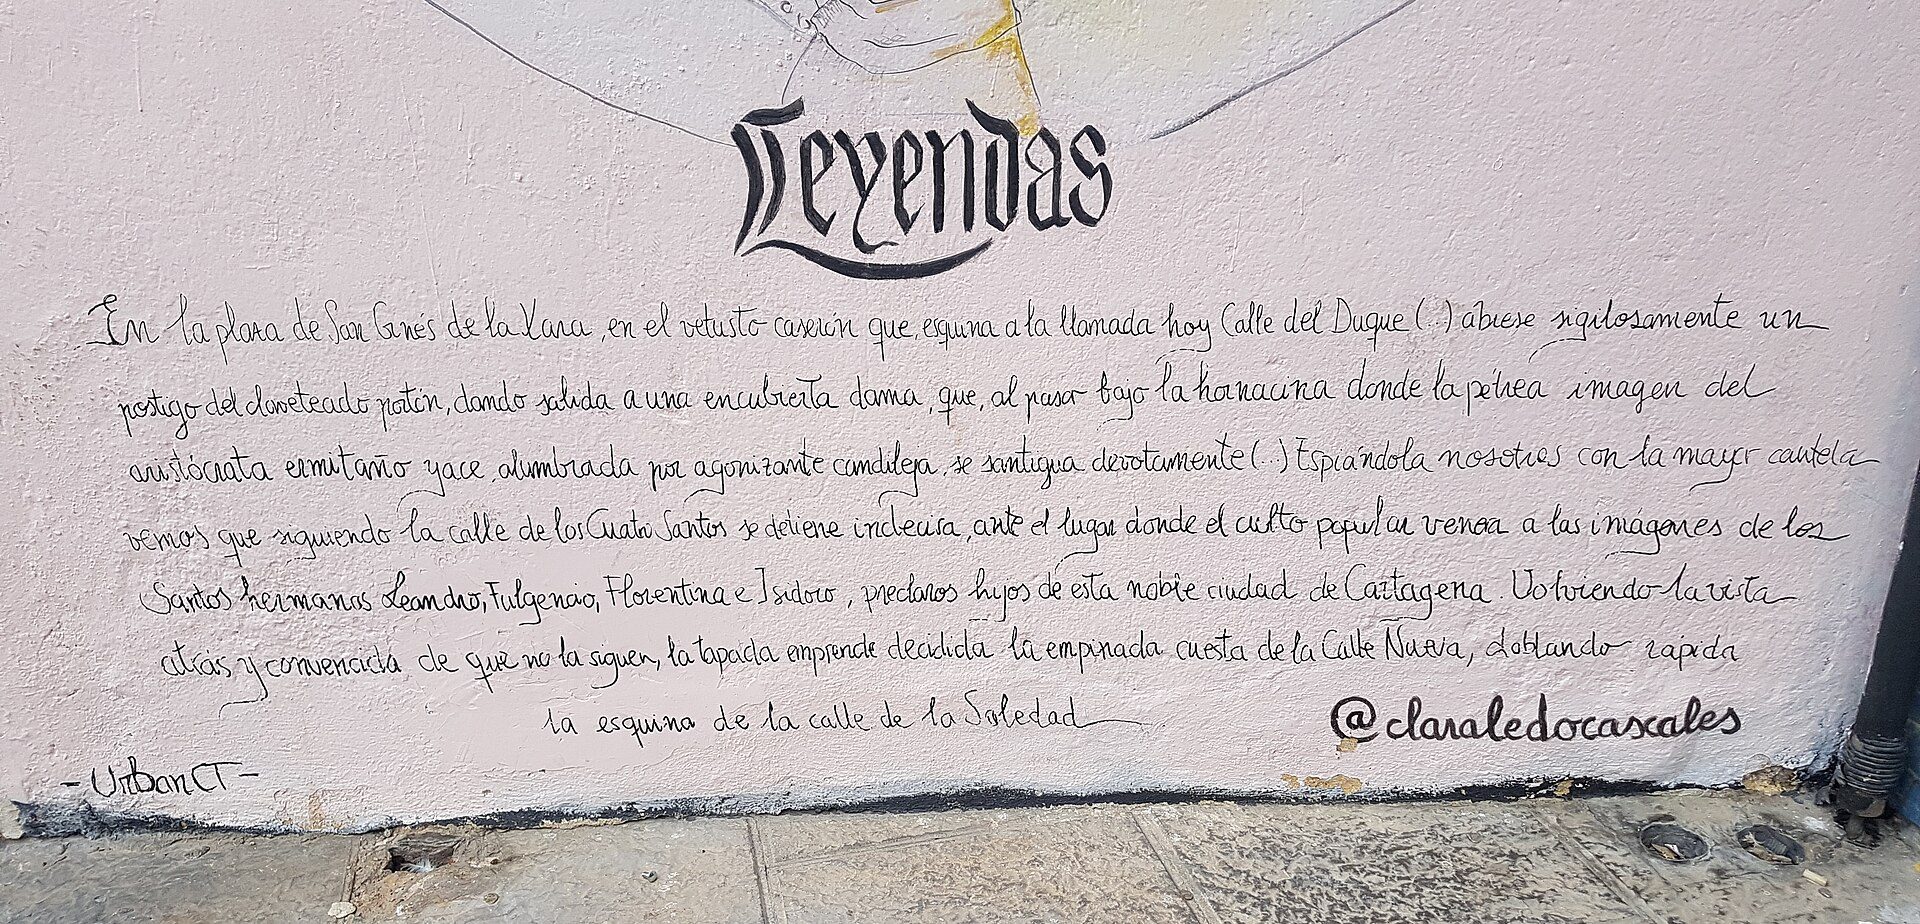 Leyendas
En la plaza de San Ginés de la Xara, en el vetusto caserón que, esquina a la llamada hoy Calle del Duque (...) abrese sigilosamente un
postigo del claveteado potón, dando salida a una encubierta dama, que, al pasar bajo la hornacina donde la pétrea imagen del
aristócrata ermitaño yace, alumbrada por agonizante candileja, se santigua devotamente (...) Espiándola nosotros con la mayor cautela
vemos que siguiendo la calle de los Cuatro Santos se detiene indecisa, ante el lugar donde el culto popular venera a las imágenes de los
Santos hermanos Leandro, Fulgencio, Florentina e Isidoro, preclaros hijos de esta noble ciudad de Cartagena. Volviendo la vista
atrás y convencida de que no la siguen, la tapada emprende decidida la empinada cuesta de la Calle Nueva, doblando rápida
la esquina de la calle de la Soledad
@claraledocascales
- UrbanCT -